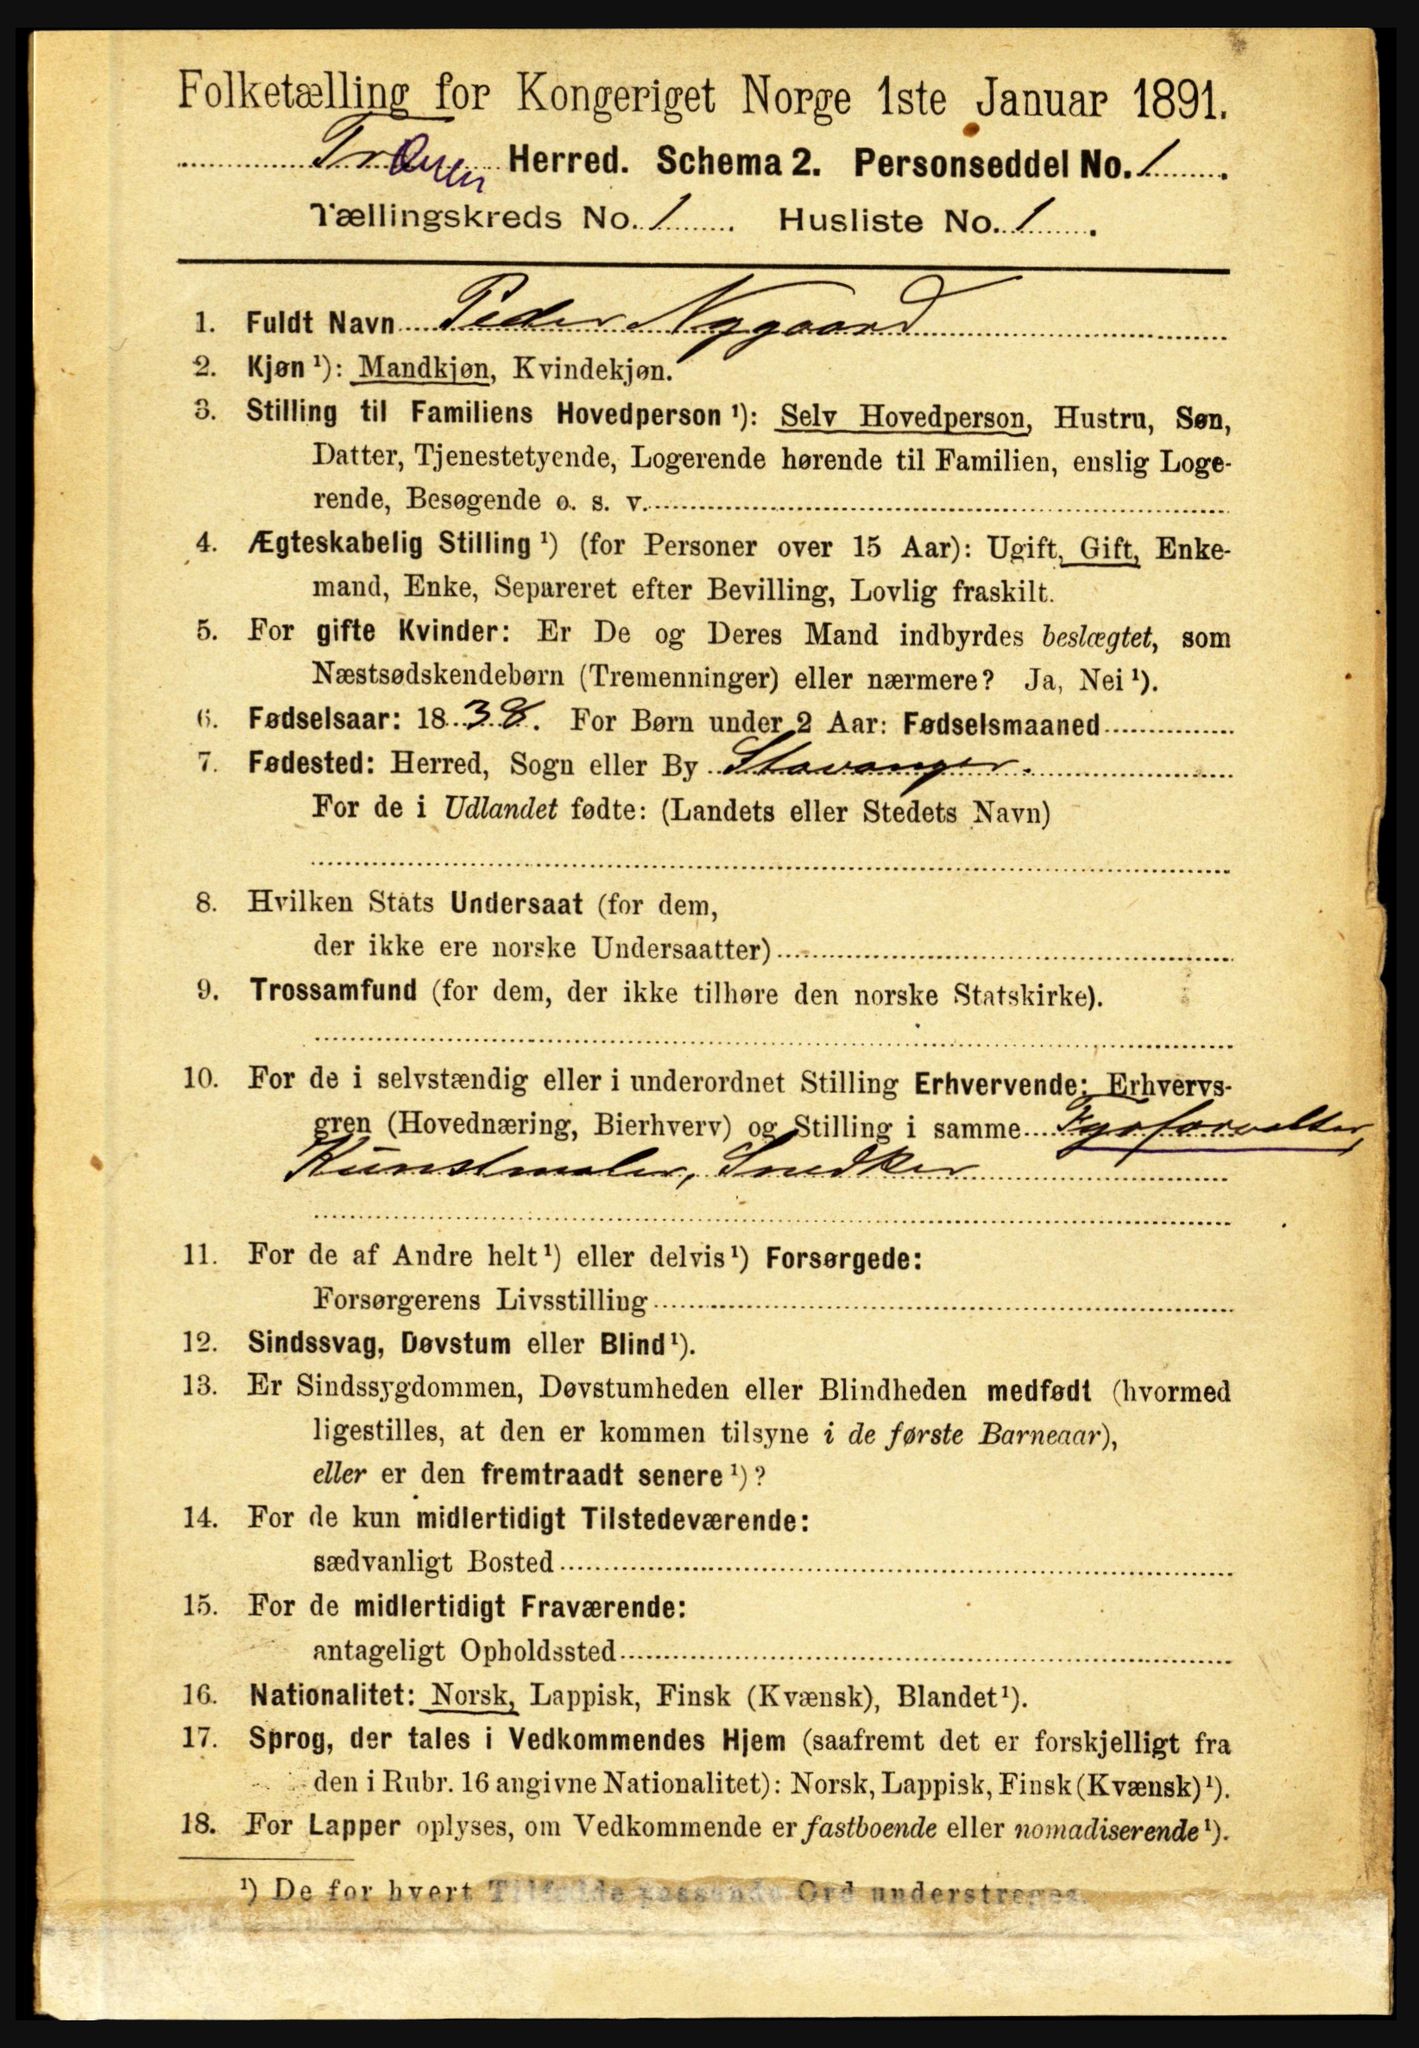 Folketælling for Kongeriget Norge 1ste Januar 1891.
Herred. Schema 2. Personseddel No. 1.
Tællingskreds No. 1. Husliste No. 1.
1. Fuldt Navn Peder Nygaard
2. Kjøn ¹): Mandkjøn, Kvindekjøn.
3. Stilling til Familiens Hovedperson ¹): Selv Hovedperson, Hustru, Søn,
Datter, Tjenestetyende, Logerende hørende til Familien, enslig Loge-
rende, Besøgende o. s. v.
4. Ægteskabelig Stilling ¹) (for Personer over 15 Aar): Ugift, Gift, Enke-
mand, Enke, Separeret efter Bevilling, Lovlig fraskilt.
5. For gifte Kvinder: Er De og Deres Mand indbyrdes beslægtet, som
Næstsødskendebørn (Tremenninger) eller nærmere? Ja, Nei ¹).
6. Fødselsaar: 1838. For Børn under 2 Aar: Fødselsmaaned
7. Fødested: Herred, Sogn eller By Stavanger.
For de i Udlandet fødte: (Landets eller Stedets Navn)
8. Hvilken Stats Undersaat (for dem,
der ikke ere norske Undersaatter)
9. Trossamfund (for dem, der ikke tilhøre den norske Statskirke).
10. For de i selvstændig eller i underordnet Stilling Erhvervende: Erhvervs-
gren (Hovednæring, Bierhverv) og Stilling i samme Fyrforvalter,
Kunstmaler, Snedker
11. For de af Andre helt ¹) eller delvis ¹) Forsørgede:
Forsørgerens Livsstilling
12. Sindssvag, Døvstum eller Blind ¹).
13. Er Sindssygdommen, Døvstumheden eller Blindheden medfødt (hvormed
ligestilles, at den er kommen tilsyne i de første Barneaar),
eller er den fremtraadt senere ¹)?
14. For de kun midlertidigt Tilstedeværende:
sædvanligt Bosted
15. For de midlertidigt Fraværende:
antageligt Opholdssted
16. Nationalitet: Norsk, Lappisk, Finsk (Kvænsk), Blandet ¹).
17. Sprog, der tales i Vedkommendes Hjem (saafremt det er forskjelligt fra
den i Rubr. 16 angivne Nationalitet): Norsk, Lappisk, Finsk (Kvænsk) ¹).
18. For Lapper oplyses, om Vedkommende er fastboende eller nomadiserende ¹).
¹) De for hvert Tilfælde passende Ord understreges.